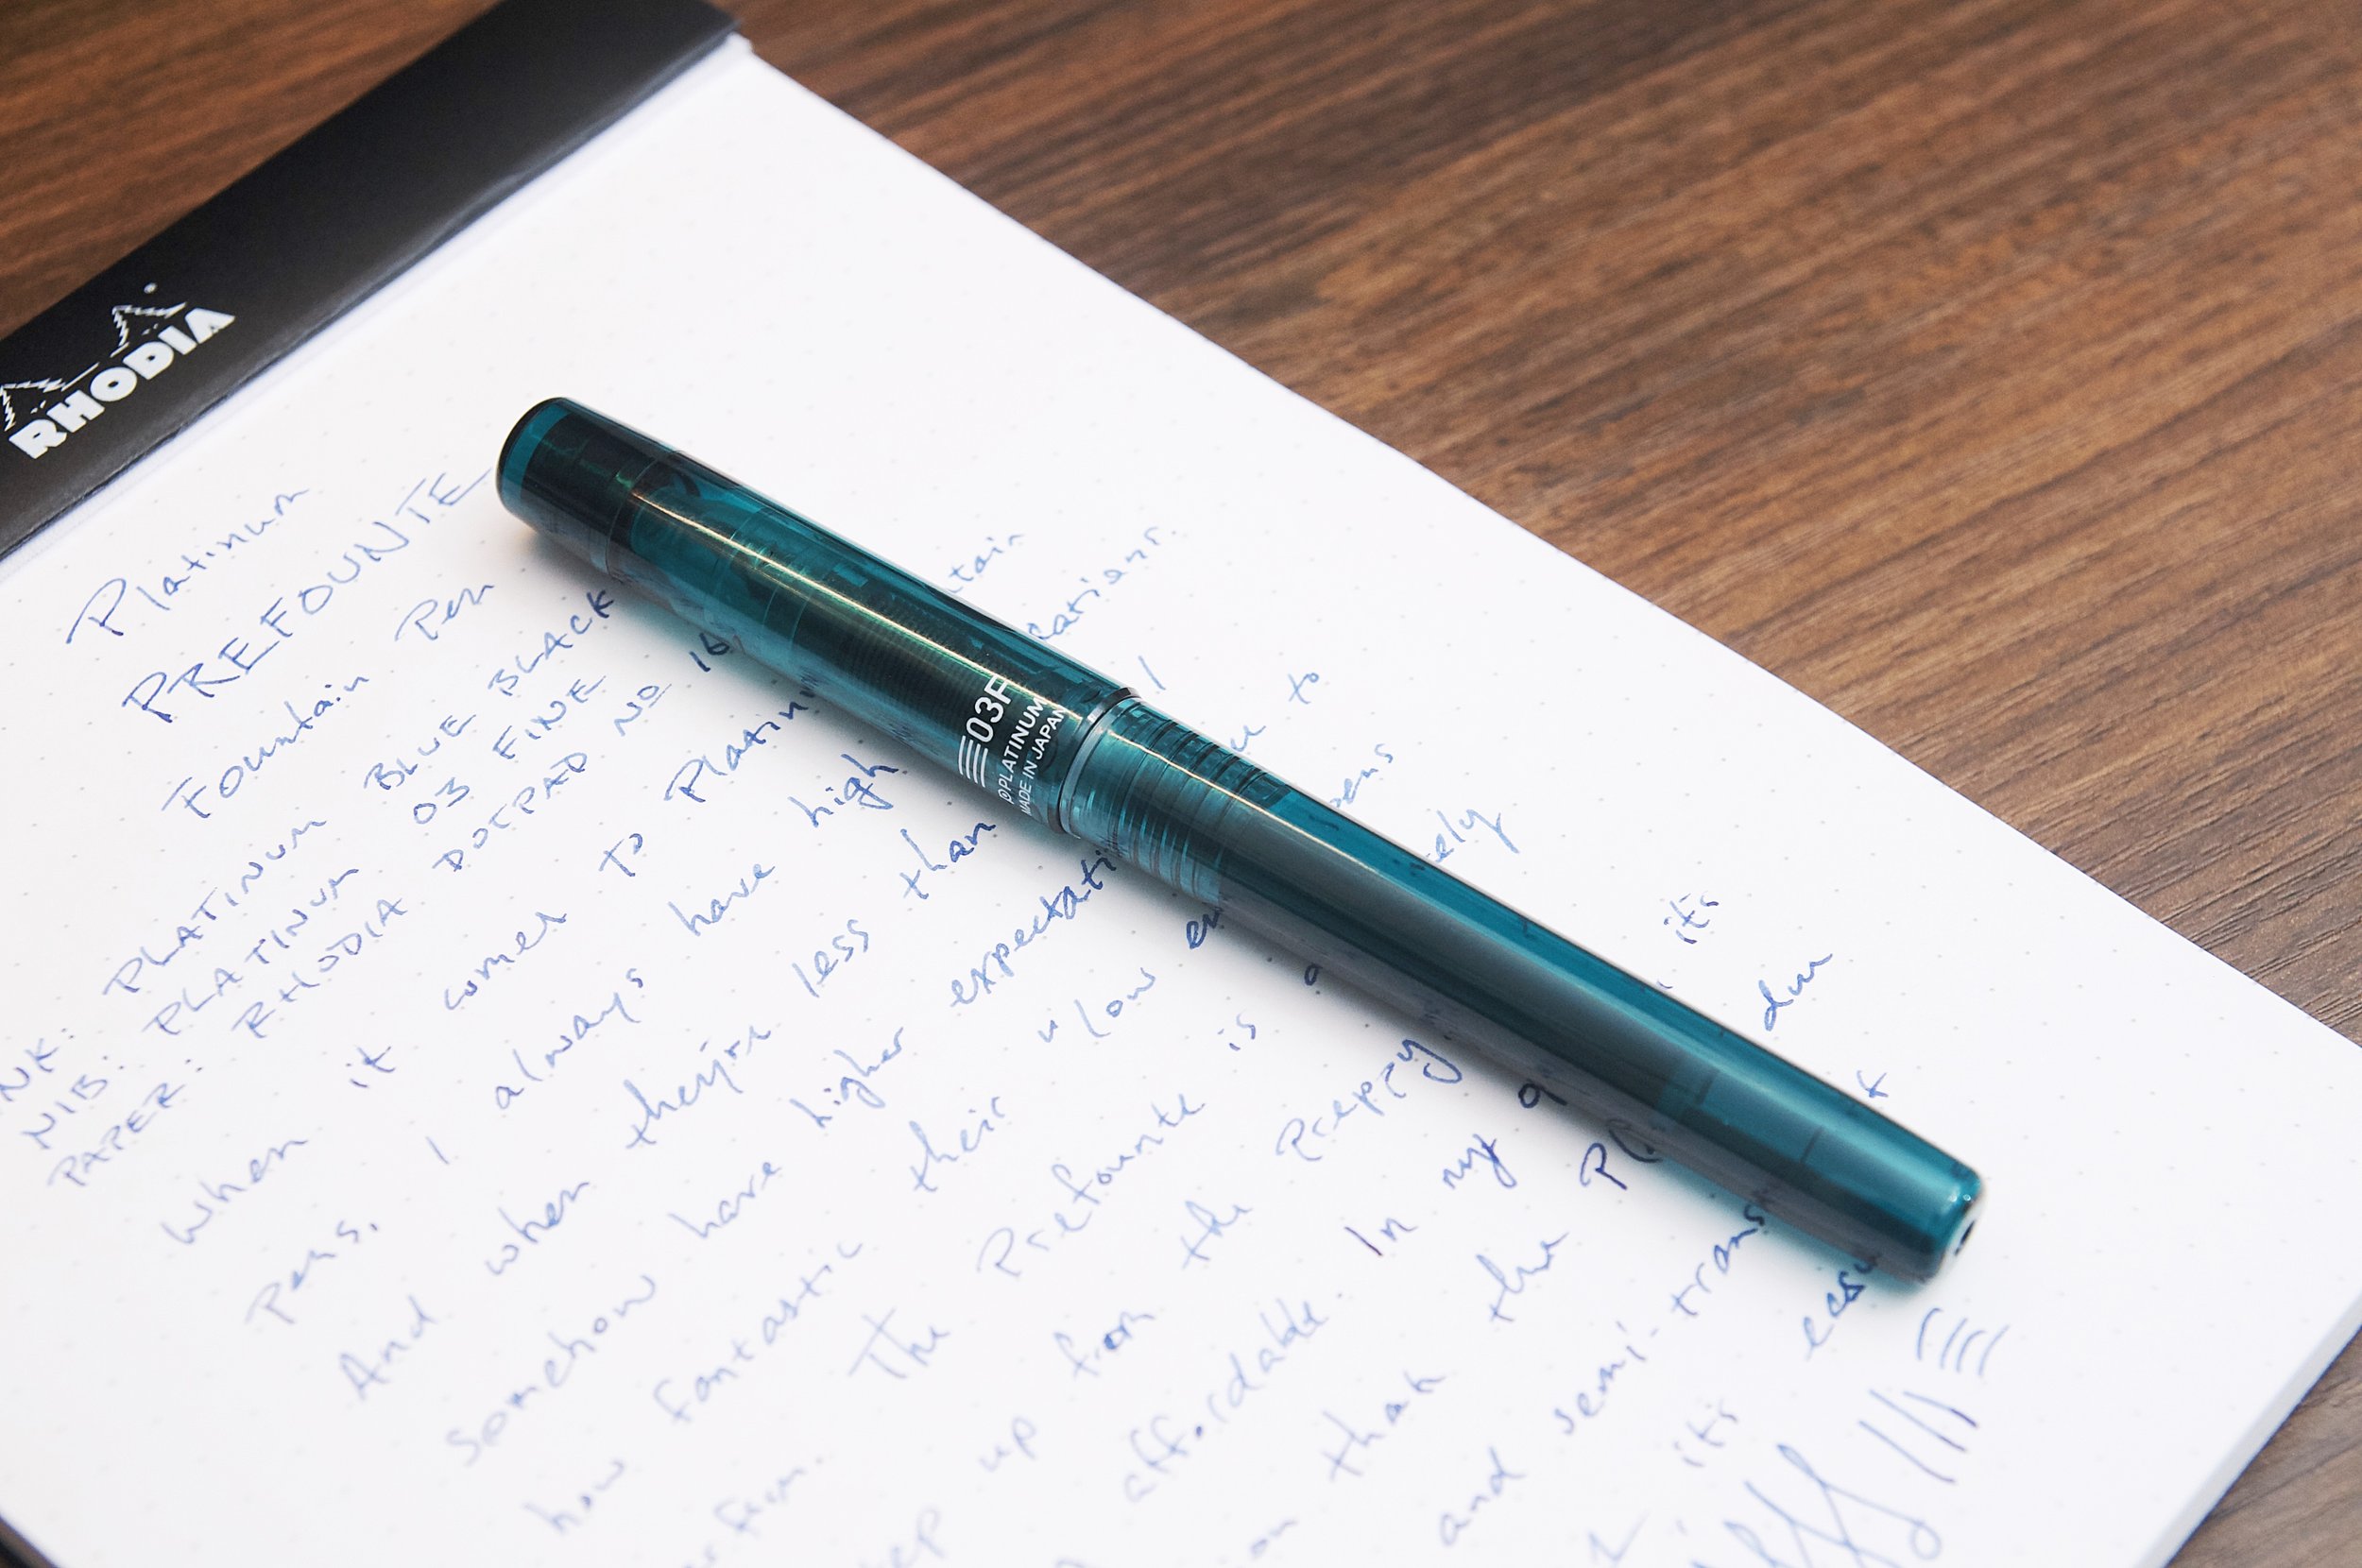 RHODIA
Platinum
PREFOUNTE
Fountain Pen
NK: PLATINUM BLUE BLACK
NIB: PLATINUM 03 FINE
PAPER: RHODIA DOTPAD NO 16
When it comes to Platinu tain
Pens, I always have high
And when they're less than I
somehow have higher expectati to
how fantastic their "low en pens
The Prefounte is a
up from the Preppy, its
affordable. In my
than the Pl
and semi-trans
its
03F
PLATINUM
MADE IN JAPAN